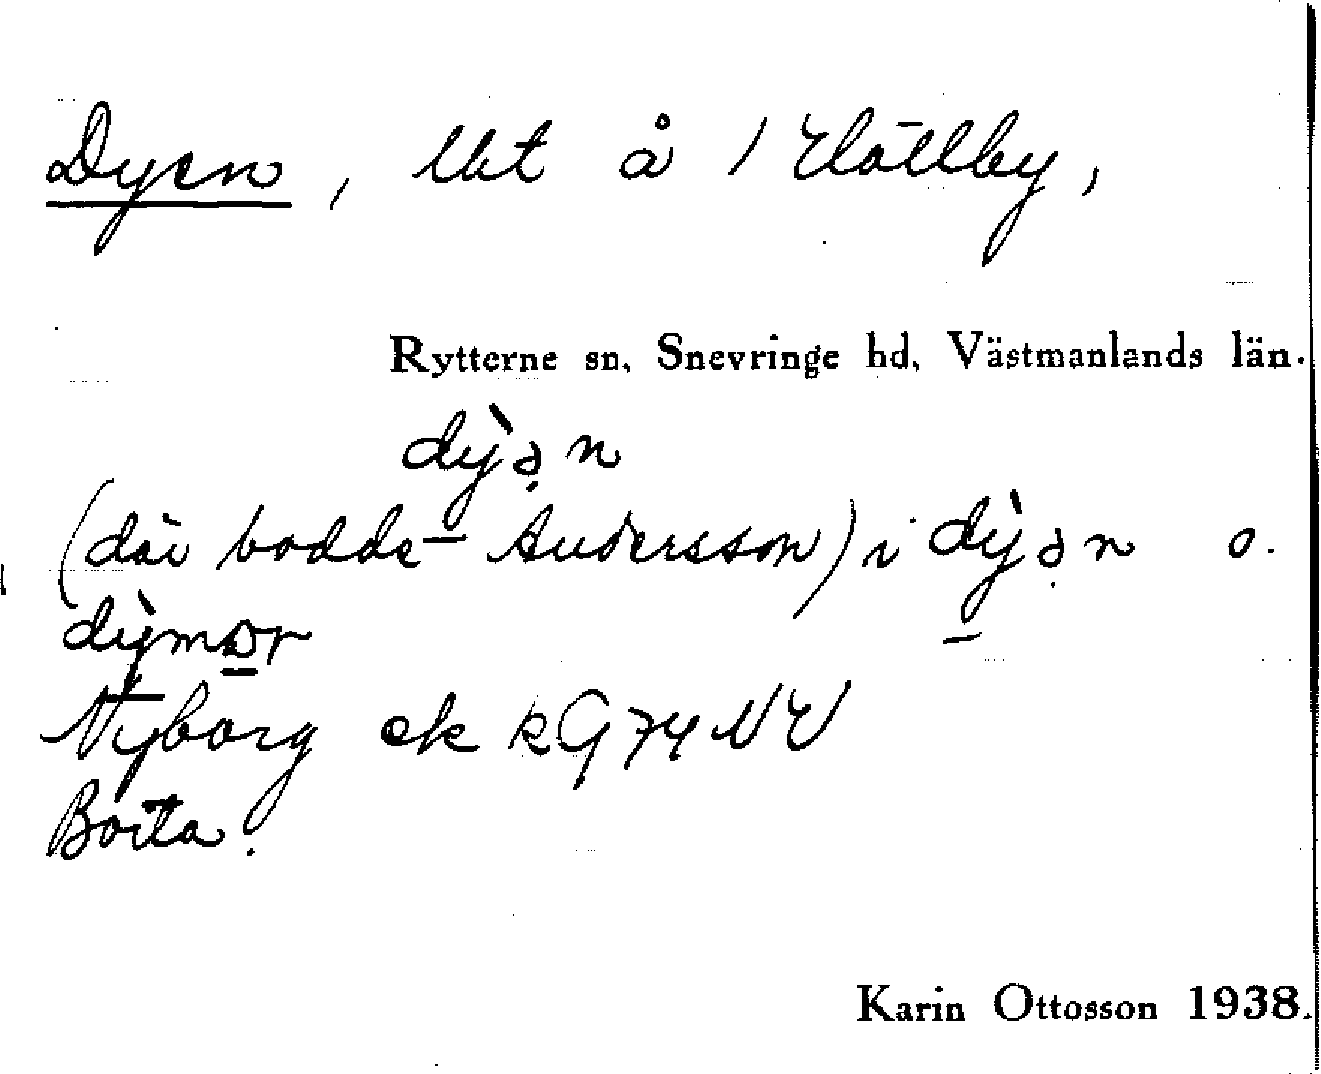 Dyen, lht å 1 Hällby,
Rytterne sn, Snevringe hd, Västmanlands län.
dỳən
(där bodde Andersson) i dỳən o.
dỳmɒr
Nyborg ek kG74NV
Borta.
Karin Ottosson 1938.